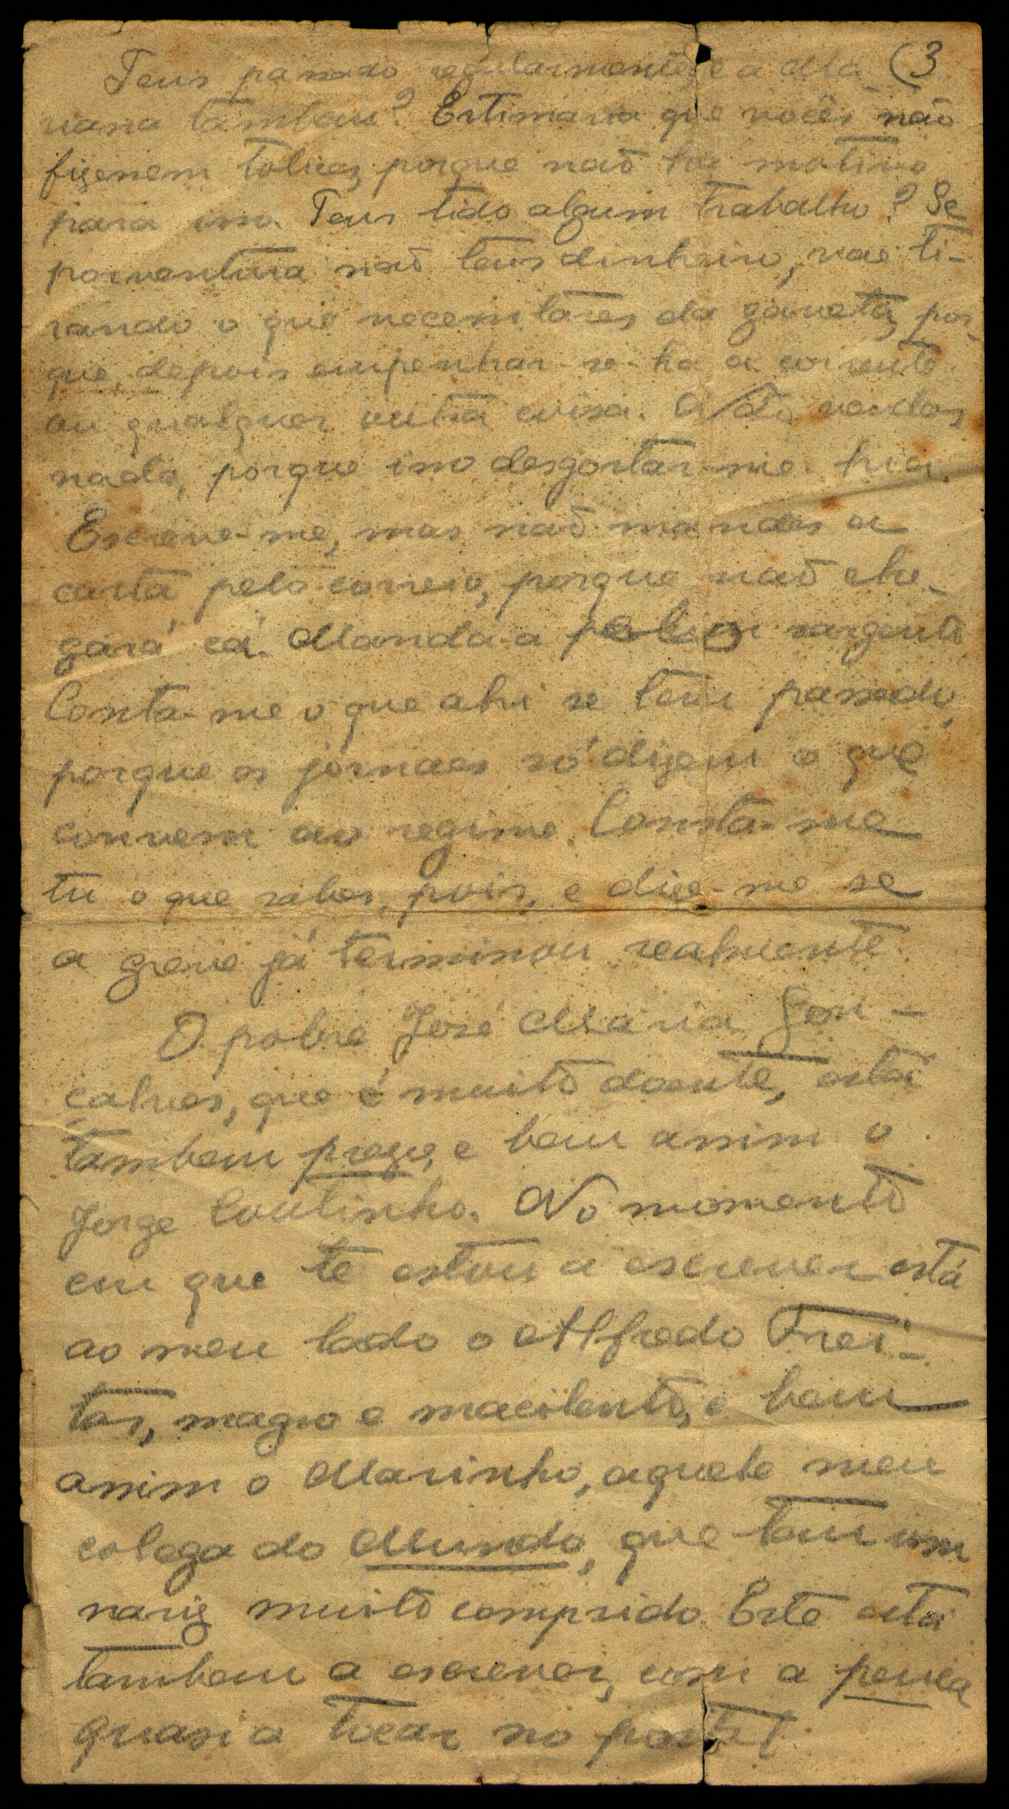 (3
Tens passado regularmente e a Ma
riana tambem? Estimaria que vocês não
fizessem tolices, porque não ha motivo
para isso. Tens tido algum trabalho? Se
porventura não tens dinheiro, vae ti-
rando o que necessitares da gaveta, por-
que, depois empenhar-se-ha a corrente
ou qualquer outra coisa. Não vendas
nada, porque isso desgostar-me-hia.
Escreve-me, mas não mandes a
carta pelo correio, porque não che-
gará cá. Manda-a pelo sargento
Conta-me o que ahi se tem passado,
porque os jornaes só dizem o que
convem ao regime. Conta-me
tu o que sabes, pois, e dize-me se
a greve já terminou realmente.
O pobre José Maria Gon-
çalves, que é muito doente, está
tambem prezo, e bem assim o
Jorge Coutinho. No momento
em que te estou a escrever está
ao meu lado o Alfredo Frei-
tas, magro e macilento, e bem
assim o Marinho, aquele meu
colega do Mundo, que tem um
nariz muito comprido. Este está
tambem a escrever, com a penca
quasi a tocar no